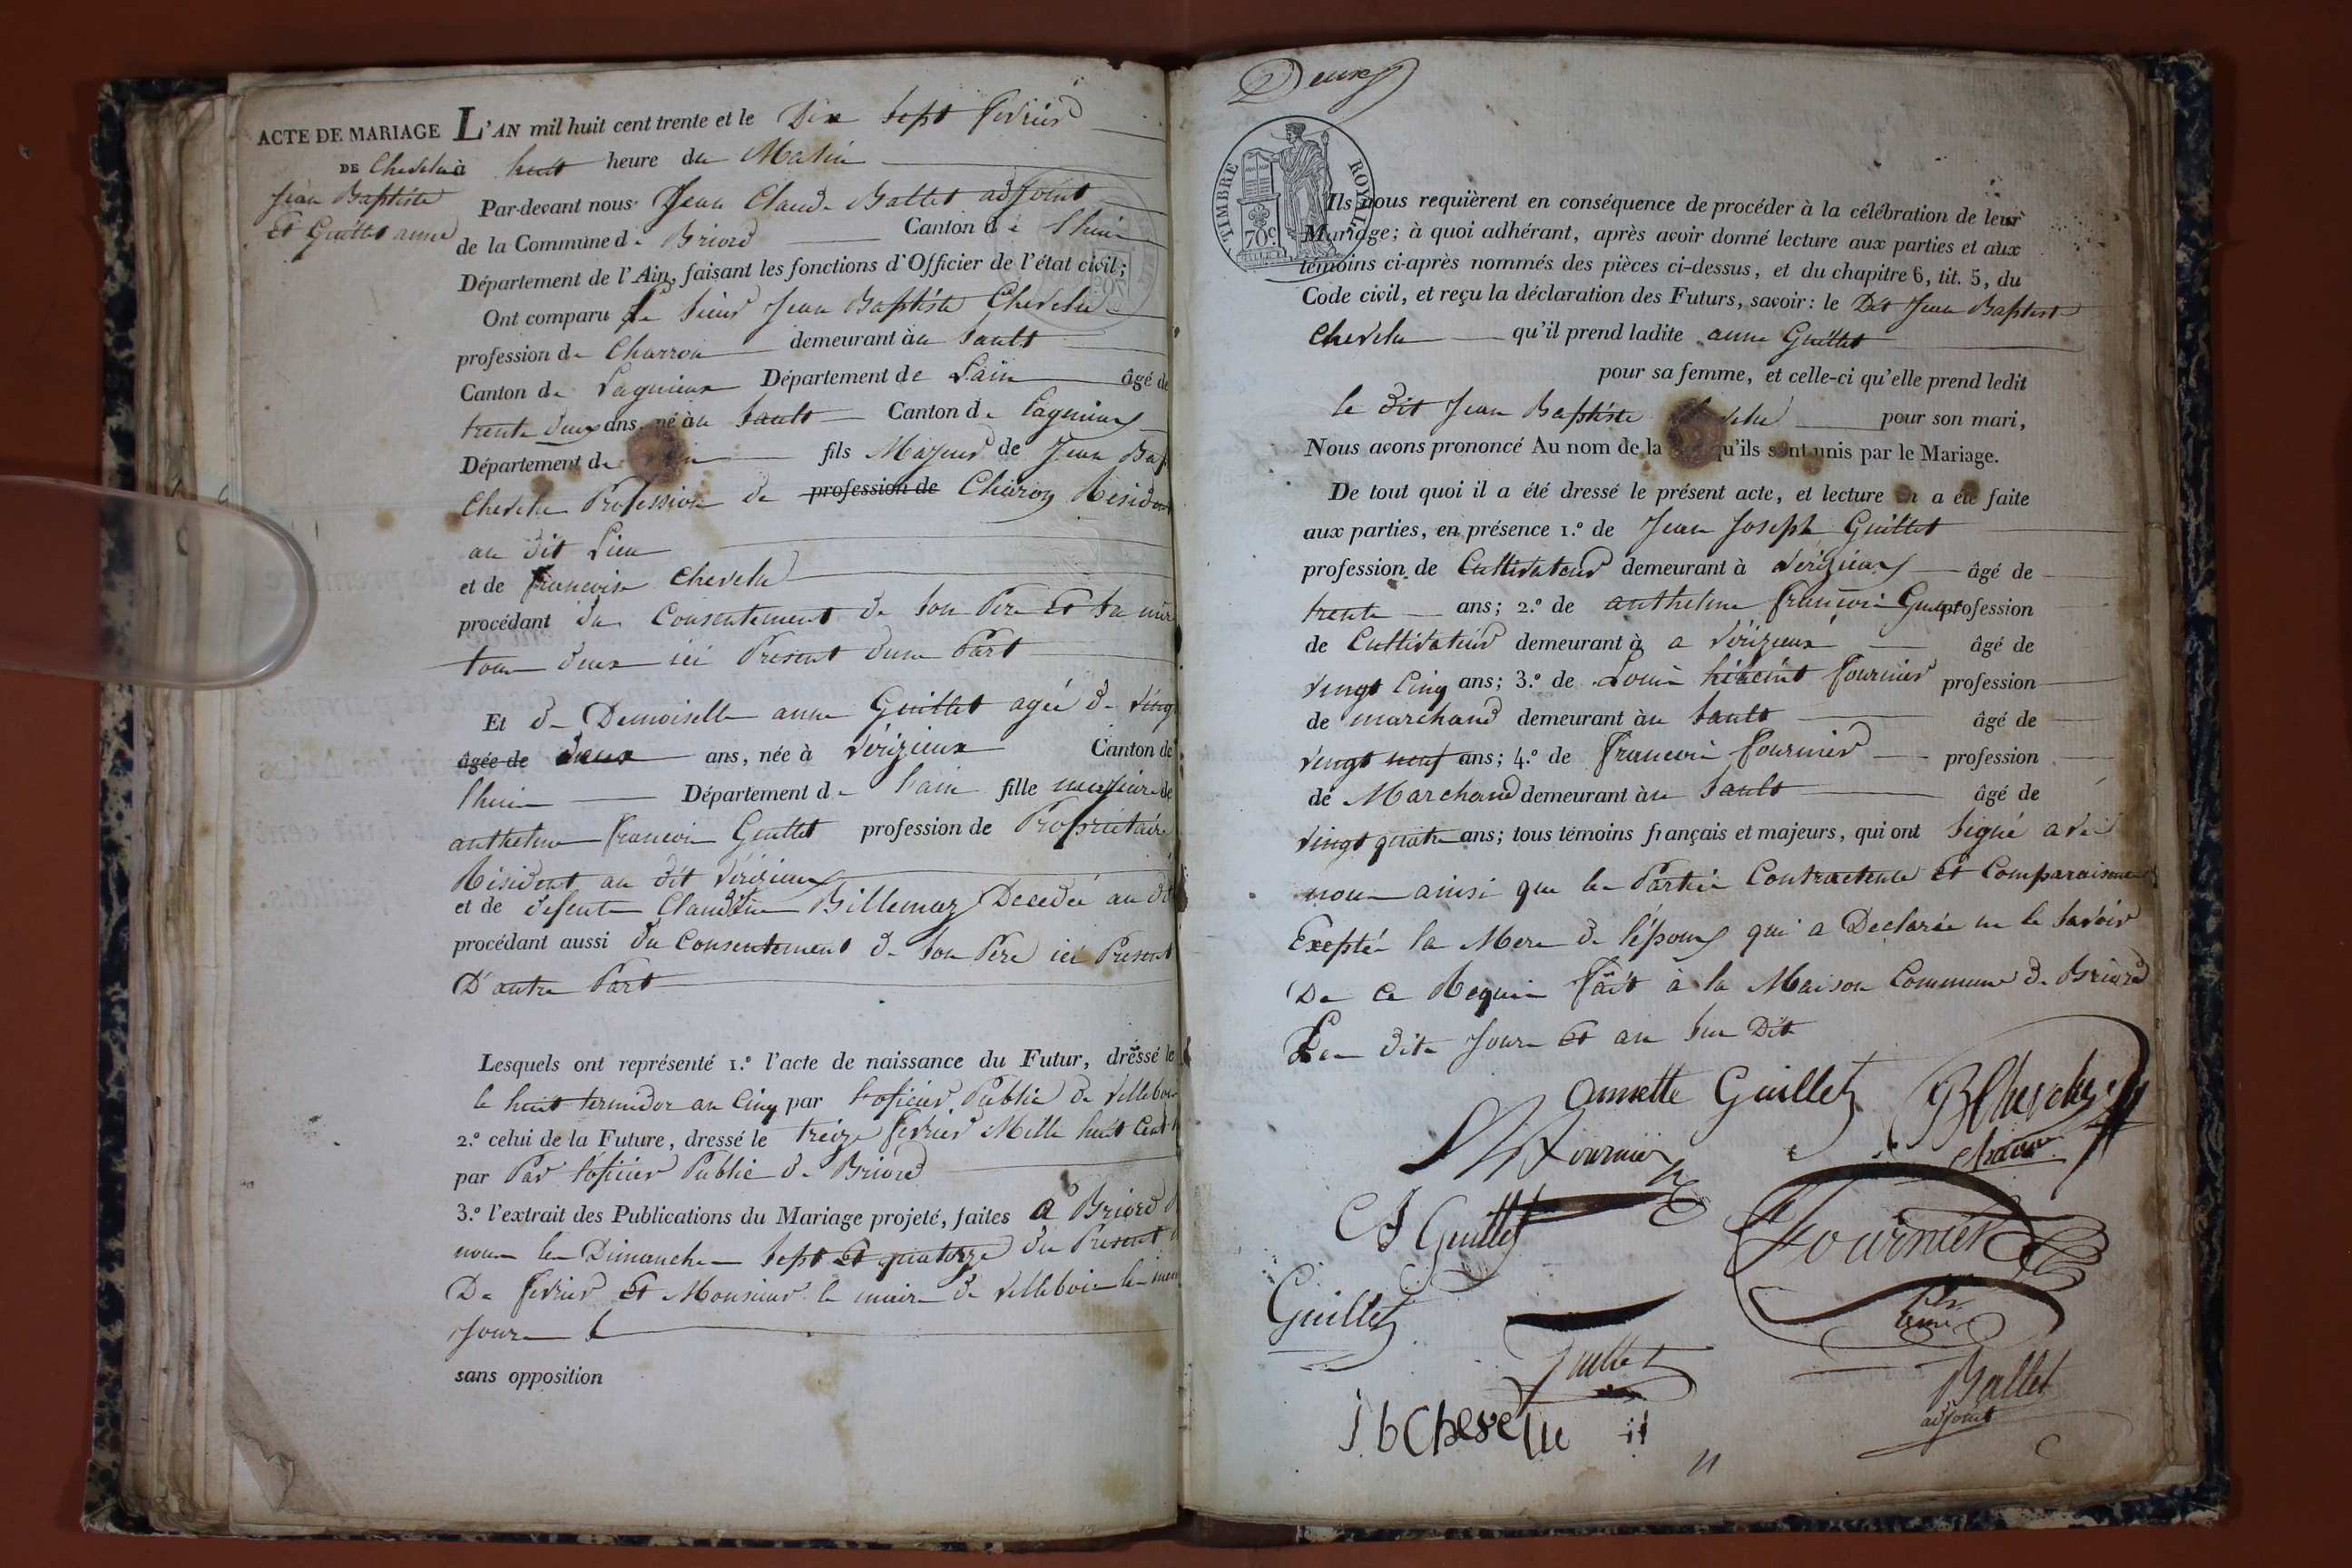 ACTE DE MARIAGE L'AN mil huit cent trente et le Dix Sept fevrier
DE Chevelu à huit heure du Matin
Jean Baptiste
Et Guillet anne
Par-devant nous Jean Claude Ballet adjoint
de la Commune de Briord Canton de Lhuis
Département de l'Ain, faisant les fonctions d'Officier de l'état civil;
Ont comparu Le Sieur Jean Baptiste Chevelu
profession de Charron demeurant au Sault
Canton de Lagnieux Département de Lain âgé de
trente deux ans, né au Sault Canton de Lagnieux
Département de fils Majeur de Jean Bap
Chevelu Profession de profession de Charon Résident
au dit Lieu
et de francoise Chevelu
procédant du Consentement de Son Pere Et Sa mere
tous deux ici Present dune Part
Et de Demoiselle anne Guillet agée de Vingt
âgée de deux ans, née à Vérizieux Canton de
Lhuis Département de Lain fille mineure de
anthelme francois Guillet profession de Propriétaire
Résident au dit Vérizieux
et de defunte Claudine Billemaz Decedée au dit
procédant aussi du Consentement de Son Pere ici Present
D'autre Part
Lesquels ont représenté 1.º l'acte de naissance du Futur, dressé le
le huit termidor an Cinq par l'oficier Public de Villebois
2.º celui de la Future, dressé le treize fevrier Mille huit Cent
par Par l'oficier Public de Briord
3.º l'extrait des Publications du Mariage projeté, faites a Briord
nous les Dimanches Sept Et quatorze du Present
De fevrier Et Monsieur le maire de Villebois les meme
Jours
sans opposition
Deux
TIMBRE ROYAL
70 c.
Ils nous requièrent en conséquence de procéder à la célébration de leur
Mariage; à quoi adhérant, après avoir donné lecture aux parties et aux
témoins ci-après nommés des pièces ci-dessus, et du chapitre 6, tit. 5, du
Code civil, et reçu la déclaration des Futurs, savoir: le Dit Jean Baptiste
Chevelu qu'il prend ladite anne Guillet
pour sa femme, et celle-ci qu'elle prend ledit
le dit Jean Baptiste pour son mari,
Nous avons prononcé Au nom de la qu'ils sont unis par le Mariage.
De tout quoi il a été dressé le présent acte, et lecture en a été faite
aux parties, en présence 1.º de Jean Joseph Guillet
profession de Cultivateur demeurant à Vérizieux âgé de
trente ans; 2.º de anthelme francois Guillet profession
de Cultivateur demeurant à a Vérizieux âgé de
vingt Cinq ans; 3.º de Louis hiacint fournier profession
de marchand demeurant au Sault âgé de
vingt neuf ans; 4.º de francois fournier profession
de Marchand demeurant au Sault âgé de
vingt quatre ans; tous témoins français et majeurs, qui ont Signé avec
nous ainsi que les Partie Contractente Et Comparaisment
Exeptée la Mere de l'époux qui a Declarée ne le Savoir
De ce Requis fait à la Maison Commune de Briord
Les dits Jours Et an Sus Dits
annette Guillet BChevelu
Fournier
Guillet
Fournier
fils
Guillet
Guillet
Ballet
adjoint
J b Chevelu